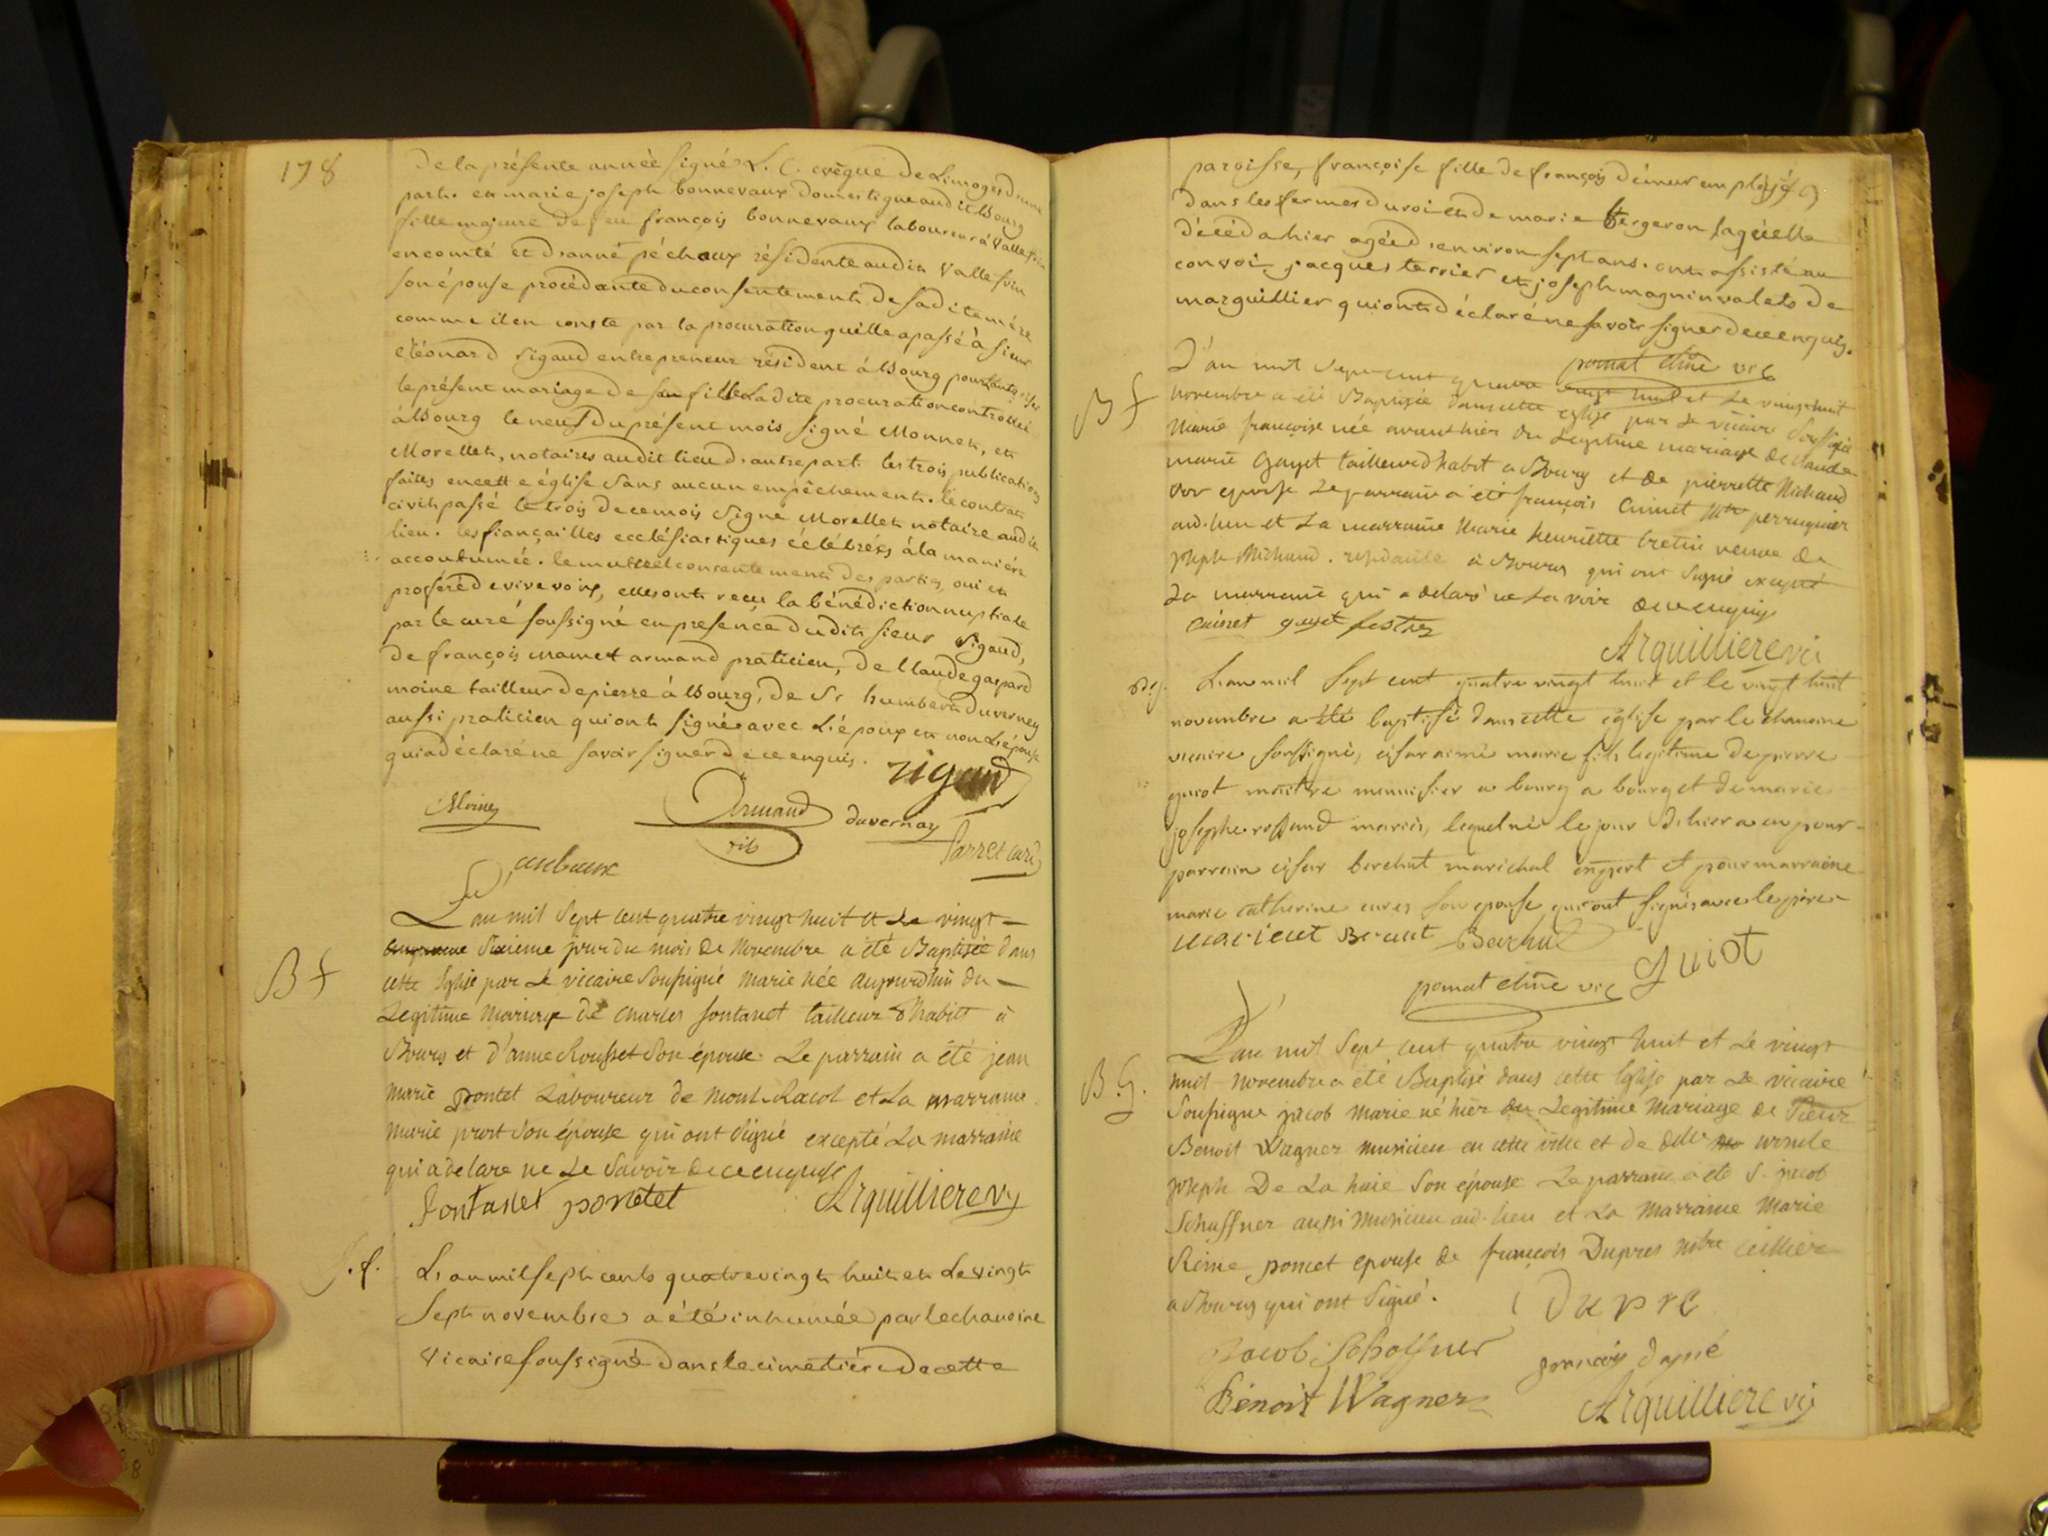 178
de la présente année signé L. C. evêque de Limoges d'une
part. et marie joseph bonnevaux domestique audit Bourg
fille majeure de feu françois bonnevaux laboureur à Vallefin
en comté et d'anne péchoux résidente audit Vallefin
son épouse procédante du consentement de sadite mére
comme il en conste par la procuration qu'elle a passé à sieur
Léonard Rigaud entrepreneur résident à Bourg pour
le présent mariage de sa fille Ladite procuration controllée
à Bourg le neuf du présent mois signé Monnet, et
Morellet, notaires audit lieu d'autre part. les trois publications
faites en cette église sans aucun empêchement. le contrat
civil passé le trois de ce mois Signé Morellet notaire audit
lieu. les fiançailles ecclésiastiques célébrées à la maniére
accoutumée. le mutuel consentement des parties oui et
proféré de vive voix, elles ont reçu la bénédiction nuptiale
par le curé soussigné en presence dudit sieur Rigaud,
de françois mamert armand praticien, de Claude gaspard
moine tailleur de pierre à Bourg, de Sr humbert duverney
aussi praticien qui ont signé avec L'époux et non L'épouse
qui a déclaré ne savoir signer de ce enquis.
rigaud
Moine
Armand
duvernay
parret curé
B f
L'an mil Sept cent quatre vingt huit et Le vingt
Sixieme jour du mois de Novembre a été Baptisée dans
cette Eglise par Le vicaire Soussigné Marie née aujourdhui du
Legitime Mariage de Charles fontanet tailleur d'habits à
Bourg et d'anne Rousset Son épouse. Le parrain a été jean
Marie pontet Laboureur de Mont-Racol et La marraine
Marie prost Son épouse qui ont Signé excepté La marraine
qui a declare ne Le Savoir de ce enquise
fontanet pontet
Arquilliere vic
L'an mil sept cents quatre vingt huit et Le vingt
Sept novembre a été inhumée par le chanoine
Vicaire soussigné dans le cimetiére de cette
paroisse, françoise fille de françois démeur employé
dans les fermes du roi et de marie bergeron laquelle
décéda hier agée d'environ sept ans. ont assisté au
convoi jacques terrier et joseph magnin valets de
marguillier qui ont déclaré ne savoir signer de ce enquis.
pomat chne vic
B f
L'an mil Sept cent quatre vingt huit et Le vingt huit
novembre a été Baptisée dans cette eglise par Le vicaire Soussigné
Marie françoise née avant hier du Legitime mariage de Claude
marie Guyet tailleur d'habit a Bourg et de pierrette Michaud
son epouse Le parrain a été françois Cuinet Mtre perruquier
aud. lieu et La marraine Marie henriette bretin veuve de
joseph Michaud. residante à Bourg qui ont Signé excepté
La marraine qui a declaré ne Le Savoir de ce enquise
Cuinet guyet
Arquilliere vic
L'an mil Sept cent quatre vingt huit et le vingt huit
novembre a été baptisé dans cette église par le chanoine
vicaire soussigné, césar aimé marie fils legitime de pierre
guiot maitre menuisier a bourg a bourg et de marie
josephe rolland mariés, lequel né le jour d'hier a eu pour
parrain césar berchut marichal expert et pour marraine
marie catherine son epouse, qui ont signés avec le père
Guiot
pomat chne vic
B. G.
L'an mil Sept cent quatre vingt huit et Le vingt
huit novembre a été Baptisé dans cette Eglise par Le vicaire
Soussigne jacob Marie né hier du Legitime Mariage de Sieur
Benoit Wagner musicien en cette ville et de dlle ursule
joseph De La haie Son épouse Le parrain a été S. jacob
Schaffner aussi musicien aud. lieu et La Marraine Marie
Reine poncet epouse de françois Dupres Mtre Cellier
a Bourg qui ont Signé.
Dupre
Jacob Schaffner
françois dupré
Benoit Wagner
Arquilliere vic